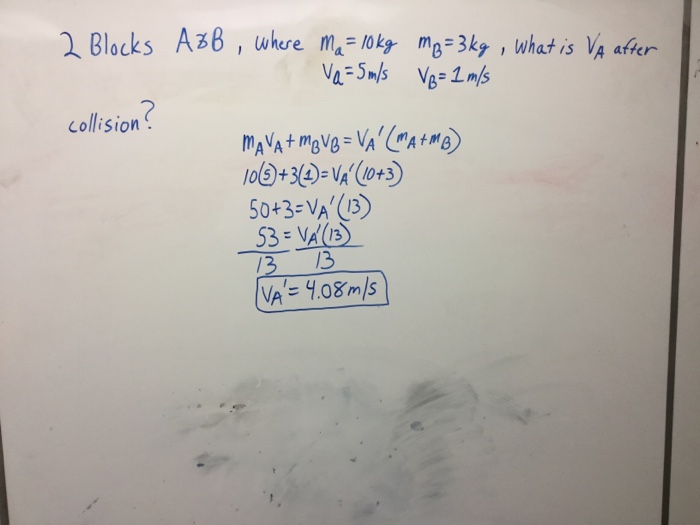 2 Blocks A&B, where ma=10kg mB=3kg, what is VA after
Va=5m/s VB=1m/s
collision?
mAVA+mBVB=VA'(mA+mB)
10(5)+3(1)=VA'(10+3)
50+3=VA'(13)
53=VA'(13)
13 13
VA'=4.08m/s